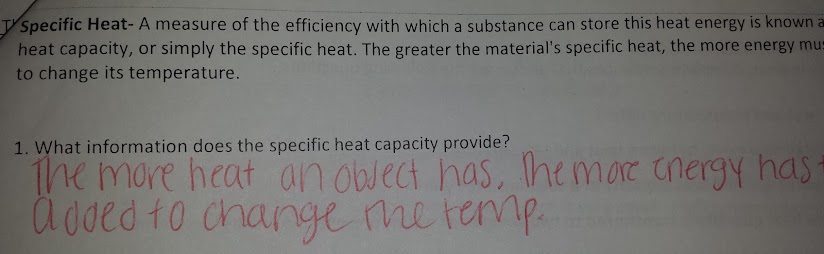 Specific Heat- A measure of the efficiency with which a substance can store this heat energy is known a
heat capacity, or simply the specific heat. The greater the material's specific heat, the more energy mus
to change its temperature.
1. What information does the specific heat capacity provide?
The more heat an object has, The more energy has
added to change the temp.